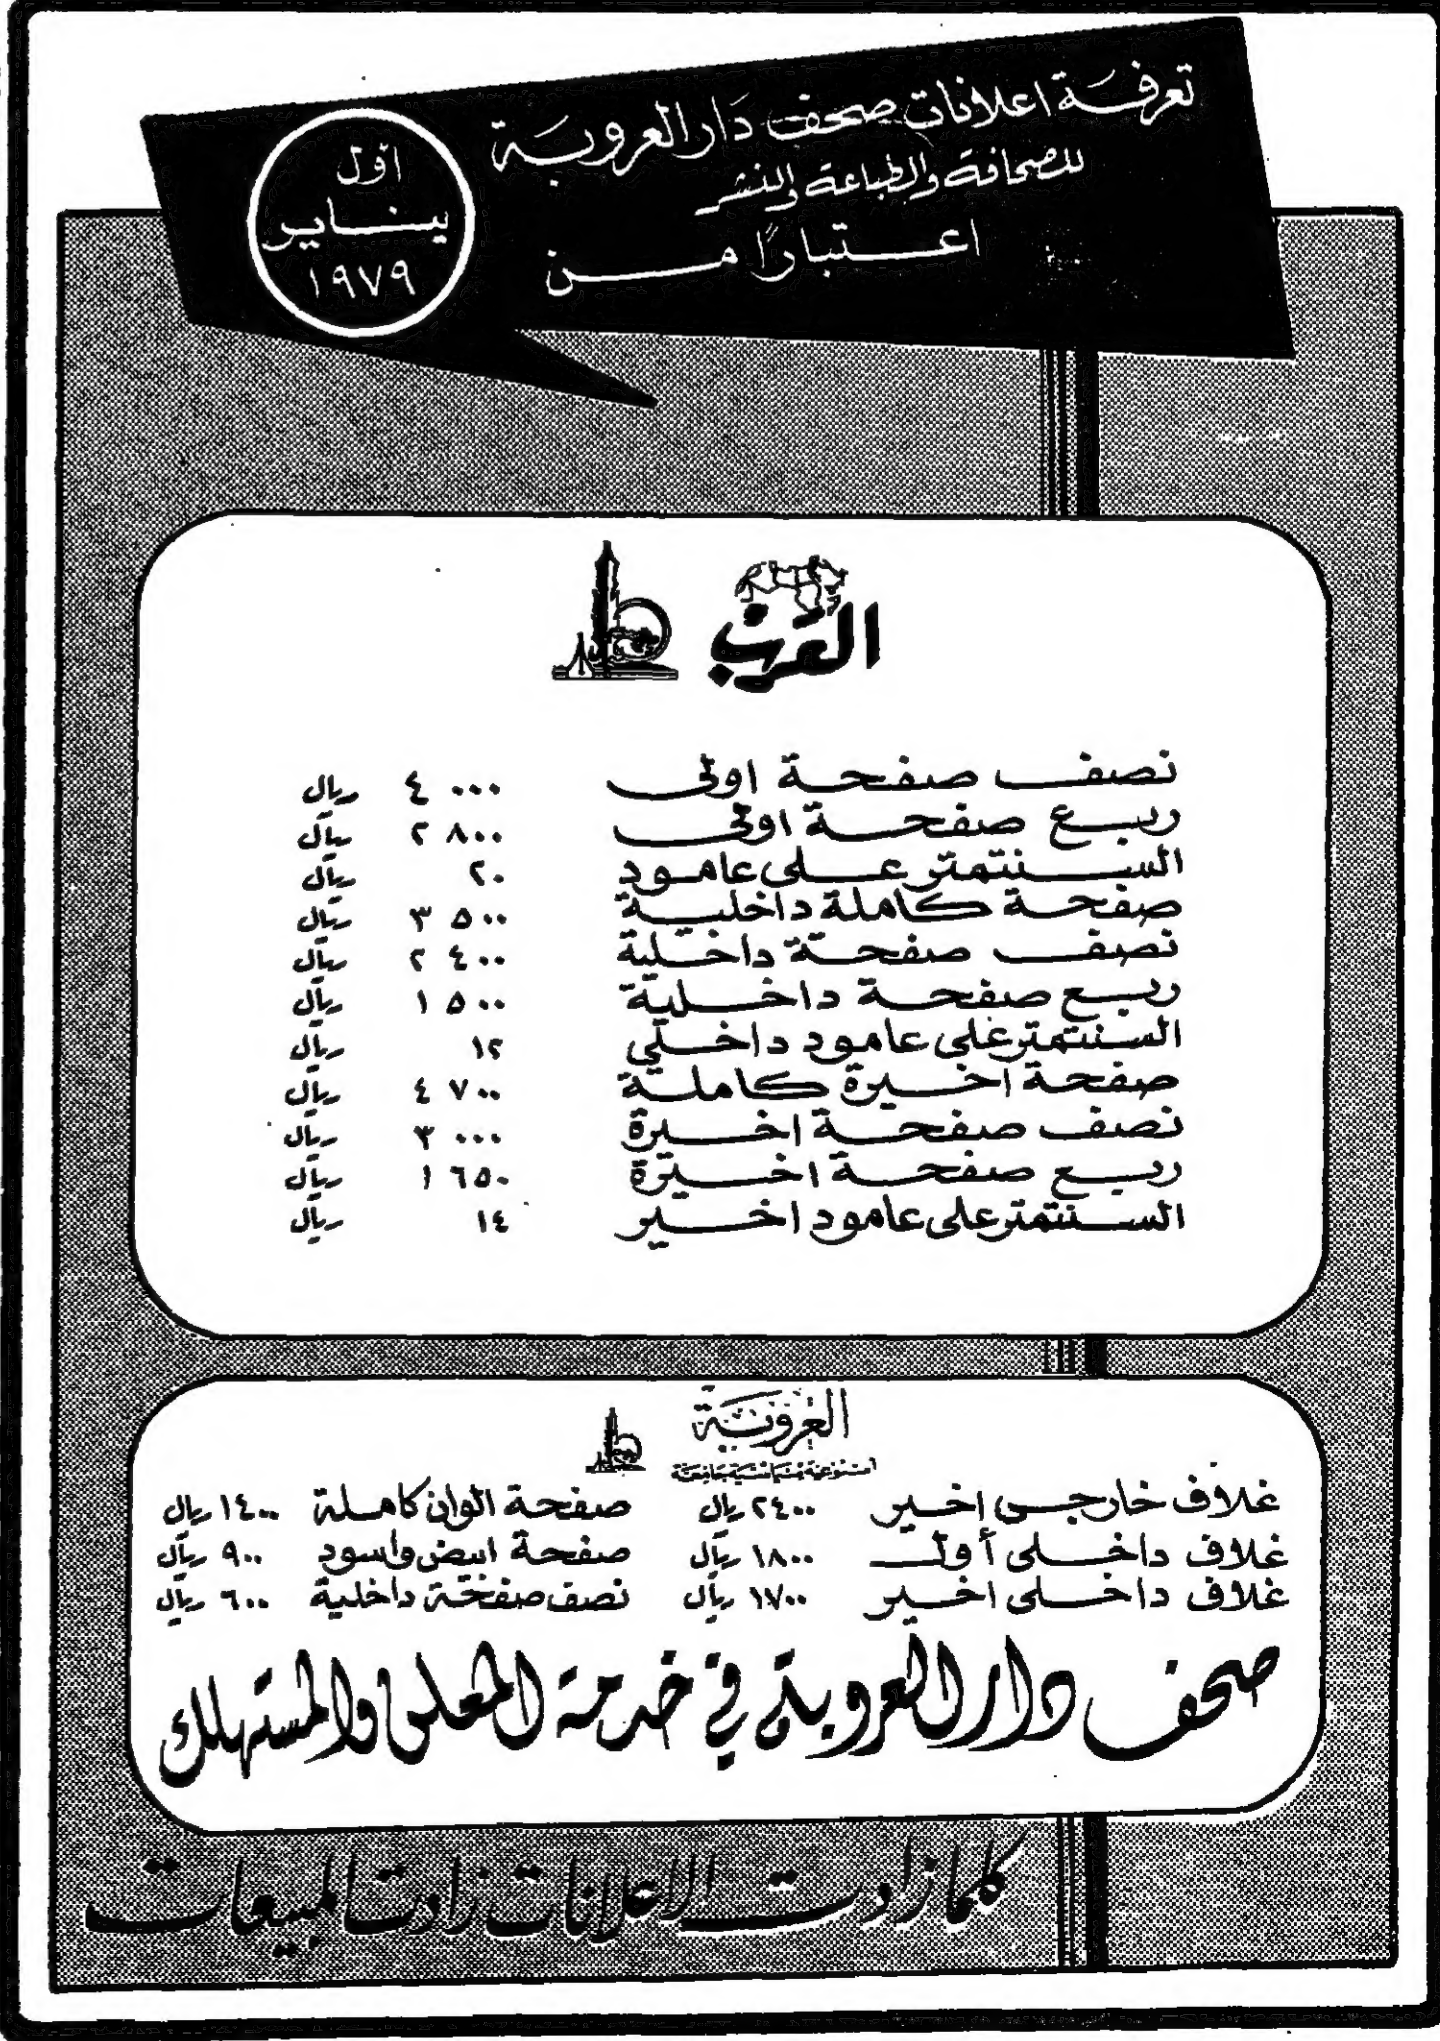 تعرفة اعلانات صحف دار العروبة
للصحافة والطباعة والنشر
اعتبارًا من
اول
يناير
١٩٧٩
العرب
نصف صفحة اولى ٤٠٠٠ ريال
ربع صفحة اولى ٢٨٠٠ ريال
السنتمتر على عامود ٢٠ ريال
صفحة كاملة داخلية ٣٥٠٠ ريال
نصف صفحة داخلية ٢٤٠٠ ريال
ربع صفحة داخلية ١٥٠٠ ريال
السنتمتر على عامود داخلي ١٢ ريال
صفحة اخيرة كاملة ٤٧٠٠ ريال
نصف صفحة اخيرة ٣٠٠٠ ريال
ربع صفحة اخيرة ١٦٥٠ ريال
السنتمتر على عامود اخير ١٤ ريال
العروبة
اسبوعية سياسية جامعة
غلاف خارجى اخير ٢٤٠٠ ريال صفحة الوان كاملة ١٤٠٠ ريال
غلاف داخلى أول ١٨٠٠ ريال صفحة ابيض واسود ٩٠٠ ريال
غلاف داخلى اخير ١٧٠٠ ريال نصف صفحة داخلية ٦٠٠ ريال
صحف دار العروبة في خدمة المعلن والمستهلك
كلما زادت الاعلانات زادت المبيعات